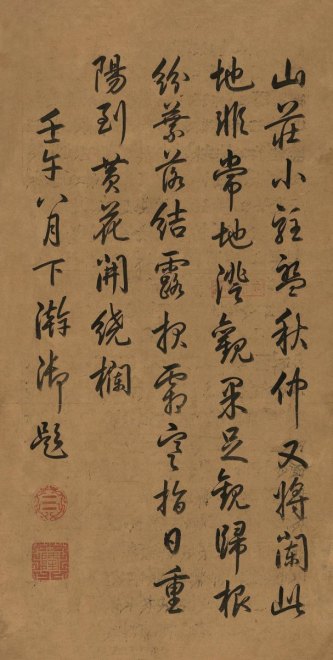 山莊小駐盤秋仲又將闌此
地非常地澄觀果足觀歸根
紛葉落結露霜寒指日重
陽到黃花開繞欄
壬午八月下澣御題